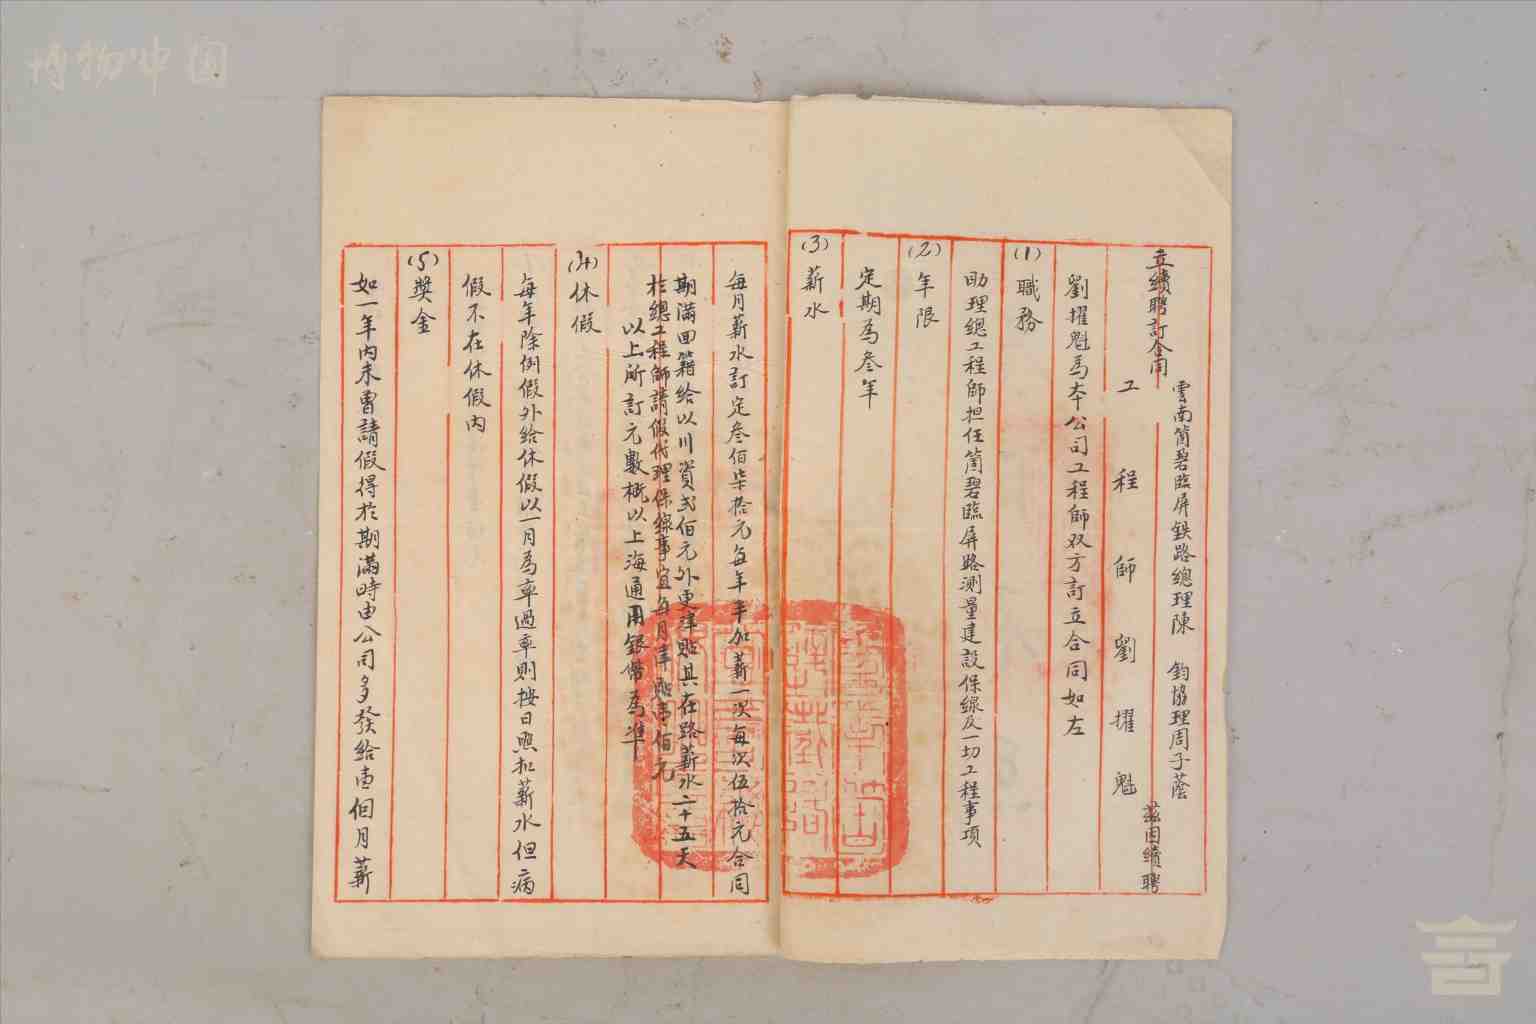 博物中国
雲南箇碧臨屏鉄路總理陳　鈞協理周子蔭
立續聘訂合同　茲因續聘
工程師劉擢魁
劉擢魁為本公司工程師双方訂立合同如左
(1)職務
助理總工程師担任箇碧臨屏路測量建設保線及一切工程事項
(2)年限
定期為叁年
(3)薪水
每月薪水訂定叁佰柒拾元每年半加薪一次每次伍拾元合同
期滿回籍給以川資弍佰元外更津貼其在路薪水二十五天
於總工程師請假代理保線事宜每月津貼壹佰元
以上所訂元數概以上海通用銀幣為準
(4)休假
每年除例假外給休假以一月為率過率則按日照扣薪水但病
假不在休假內
(5)獎金
如一年內未曾請假得於期滿時由公司多發給壹個月薪